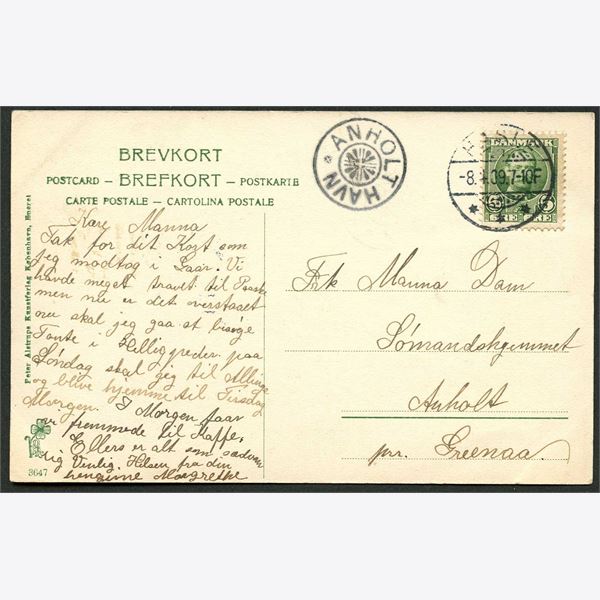 BREVKORT
POSTCARD – BREFKORT – POSTKARTE
CARTE POSTALE – CARTOLINA POSTALE
ANHOLT HAVN
DANMARK
-8.4.09.7-10F
5 5
ØRE ØRE
Kære Manna
Tak for dit Kort som
jeg modtog i Gaar. Vi
havde meget travet til Paaske
men nu er det overstaaet
nu skal jeg gaa at bisøge
Tante i Helligpeder, paa
Søndag skal jeg til Allinge
og blive hjemme til Tirsdag
Morgen. I Morgen faar
vi fremmede til Kaffe,
Ellers er alt som sædvan
lig Venlig. Hilsen fra din
hengivne Margrethe
Frk Manna Dam
Sømandshjemmet
Anholt
pr. Greenaa
Peter Alstrups Kunstforlag København, Eneret
3647